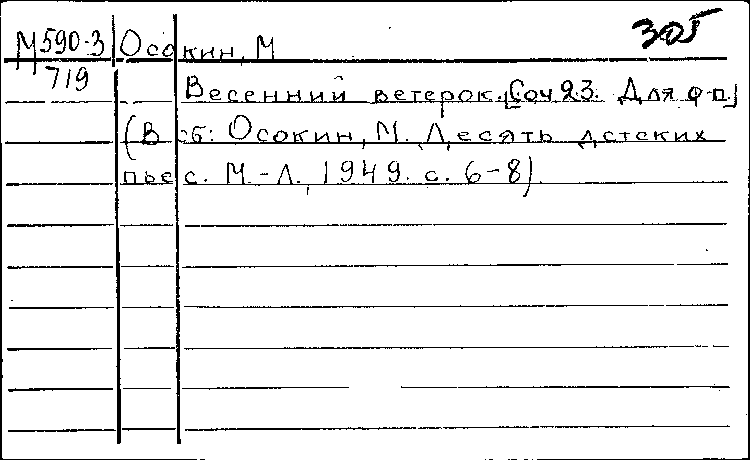 305
М590-3 Осокин, М
719
Весенний ветерок. [Соч 23. Для ф-п.]
(В сб: Осокин, М. Десять детских
пьес. М.-Л., 1949. с. 6-8).